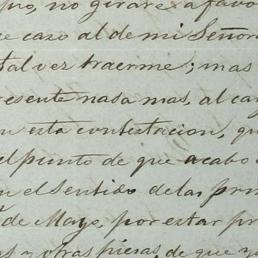 no girare a favo
e caso al de mi Señor
tal vez traerme; mas
resente nasa mas, al ca
n esta contestacion, qu
el punto de que acabo
n el Sentido de las pri
de Mayo, por estar pr
y otras piesas, de que y